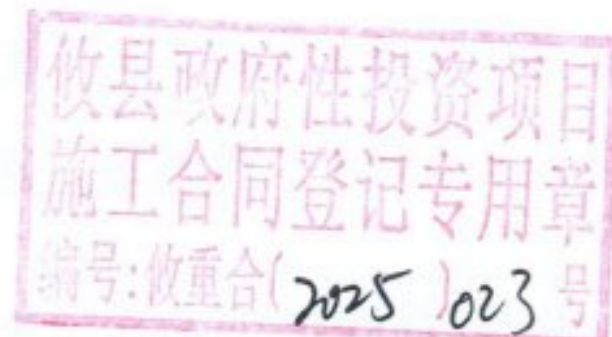 攸县政府性投资项目
施工合同登记专用章
编号:攸重合(2025)023号